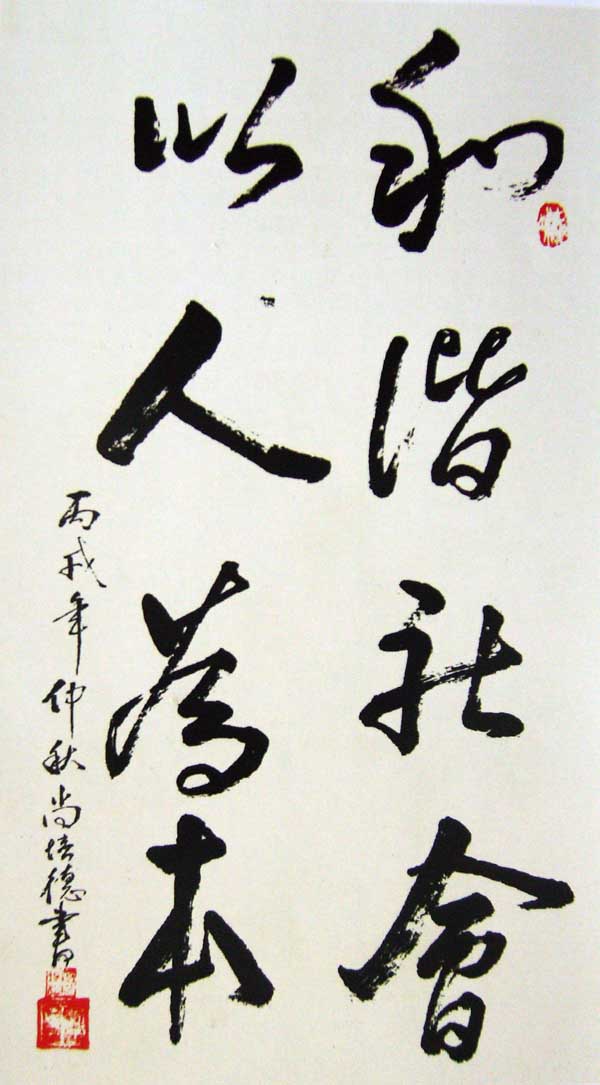 和谐社會
以人為本
丙戌年仲秋尚培德書